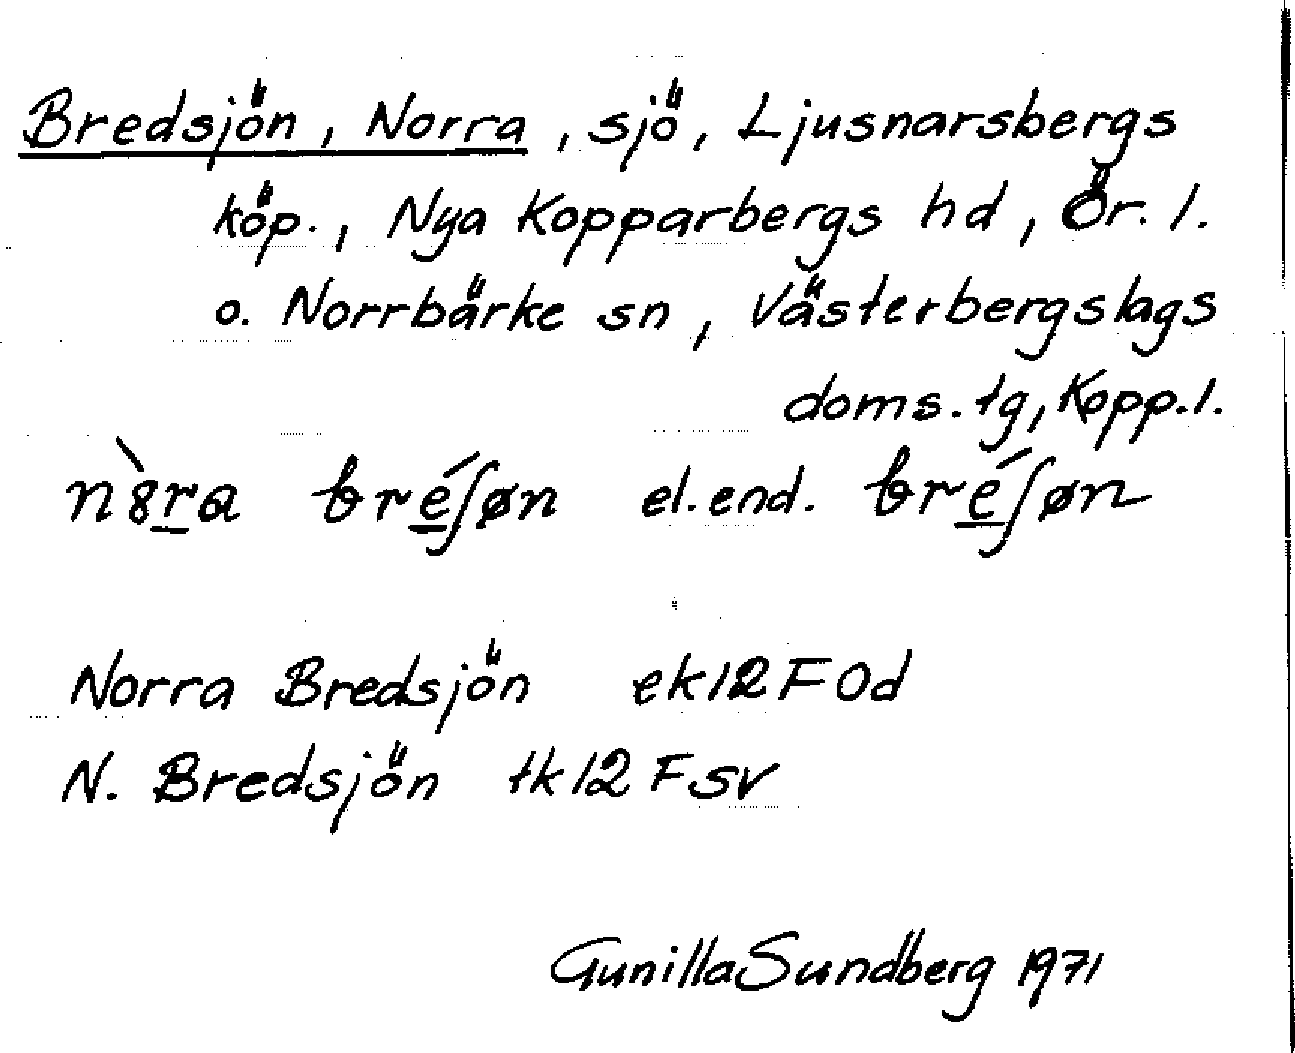 Bredsjön, Norra, sjö, Ljusnarsbergs
köp., Nya Kopparbergs hd, Ör. l.
o. Norrbärke sn, Västerbergslags
doms. tg, Kopp. l.
n8̀r̲a bré̲ʃøn el. end. bré̲ʃøn
Norra Bredsjön ek 12 F 0d
N. Bredsjön tk 12 F SV
Gunilla Sundberg 1971